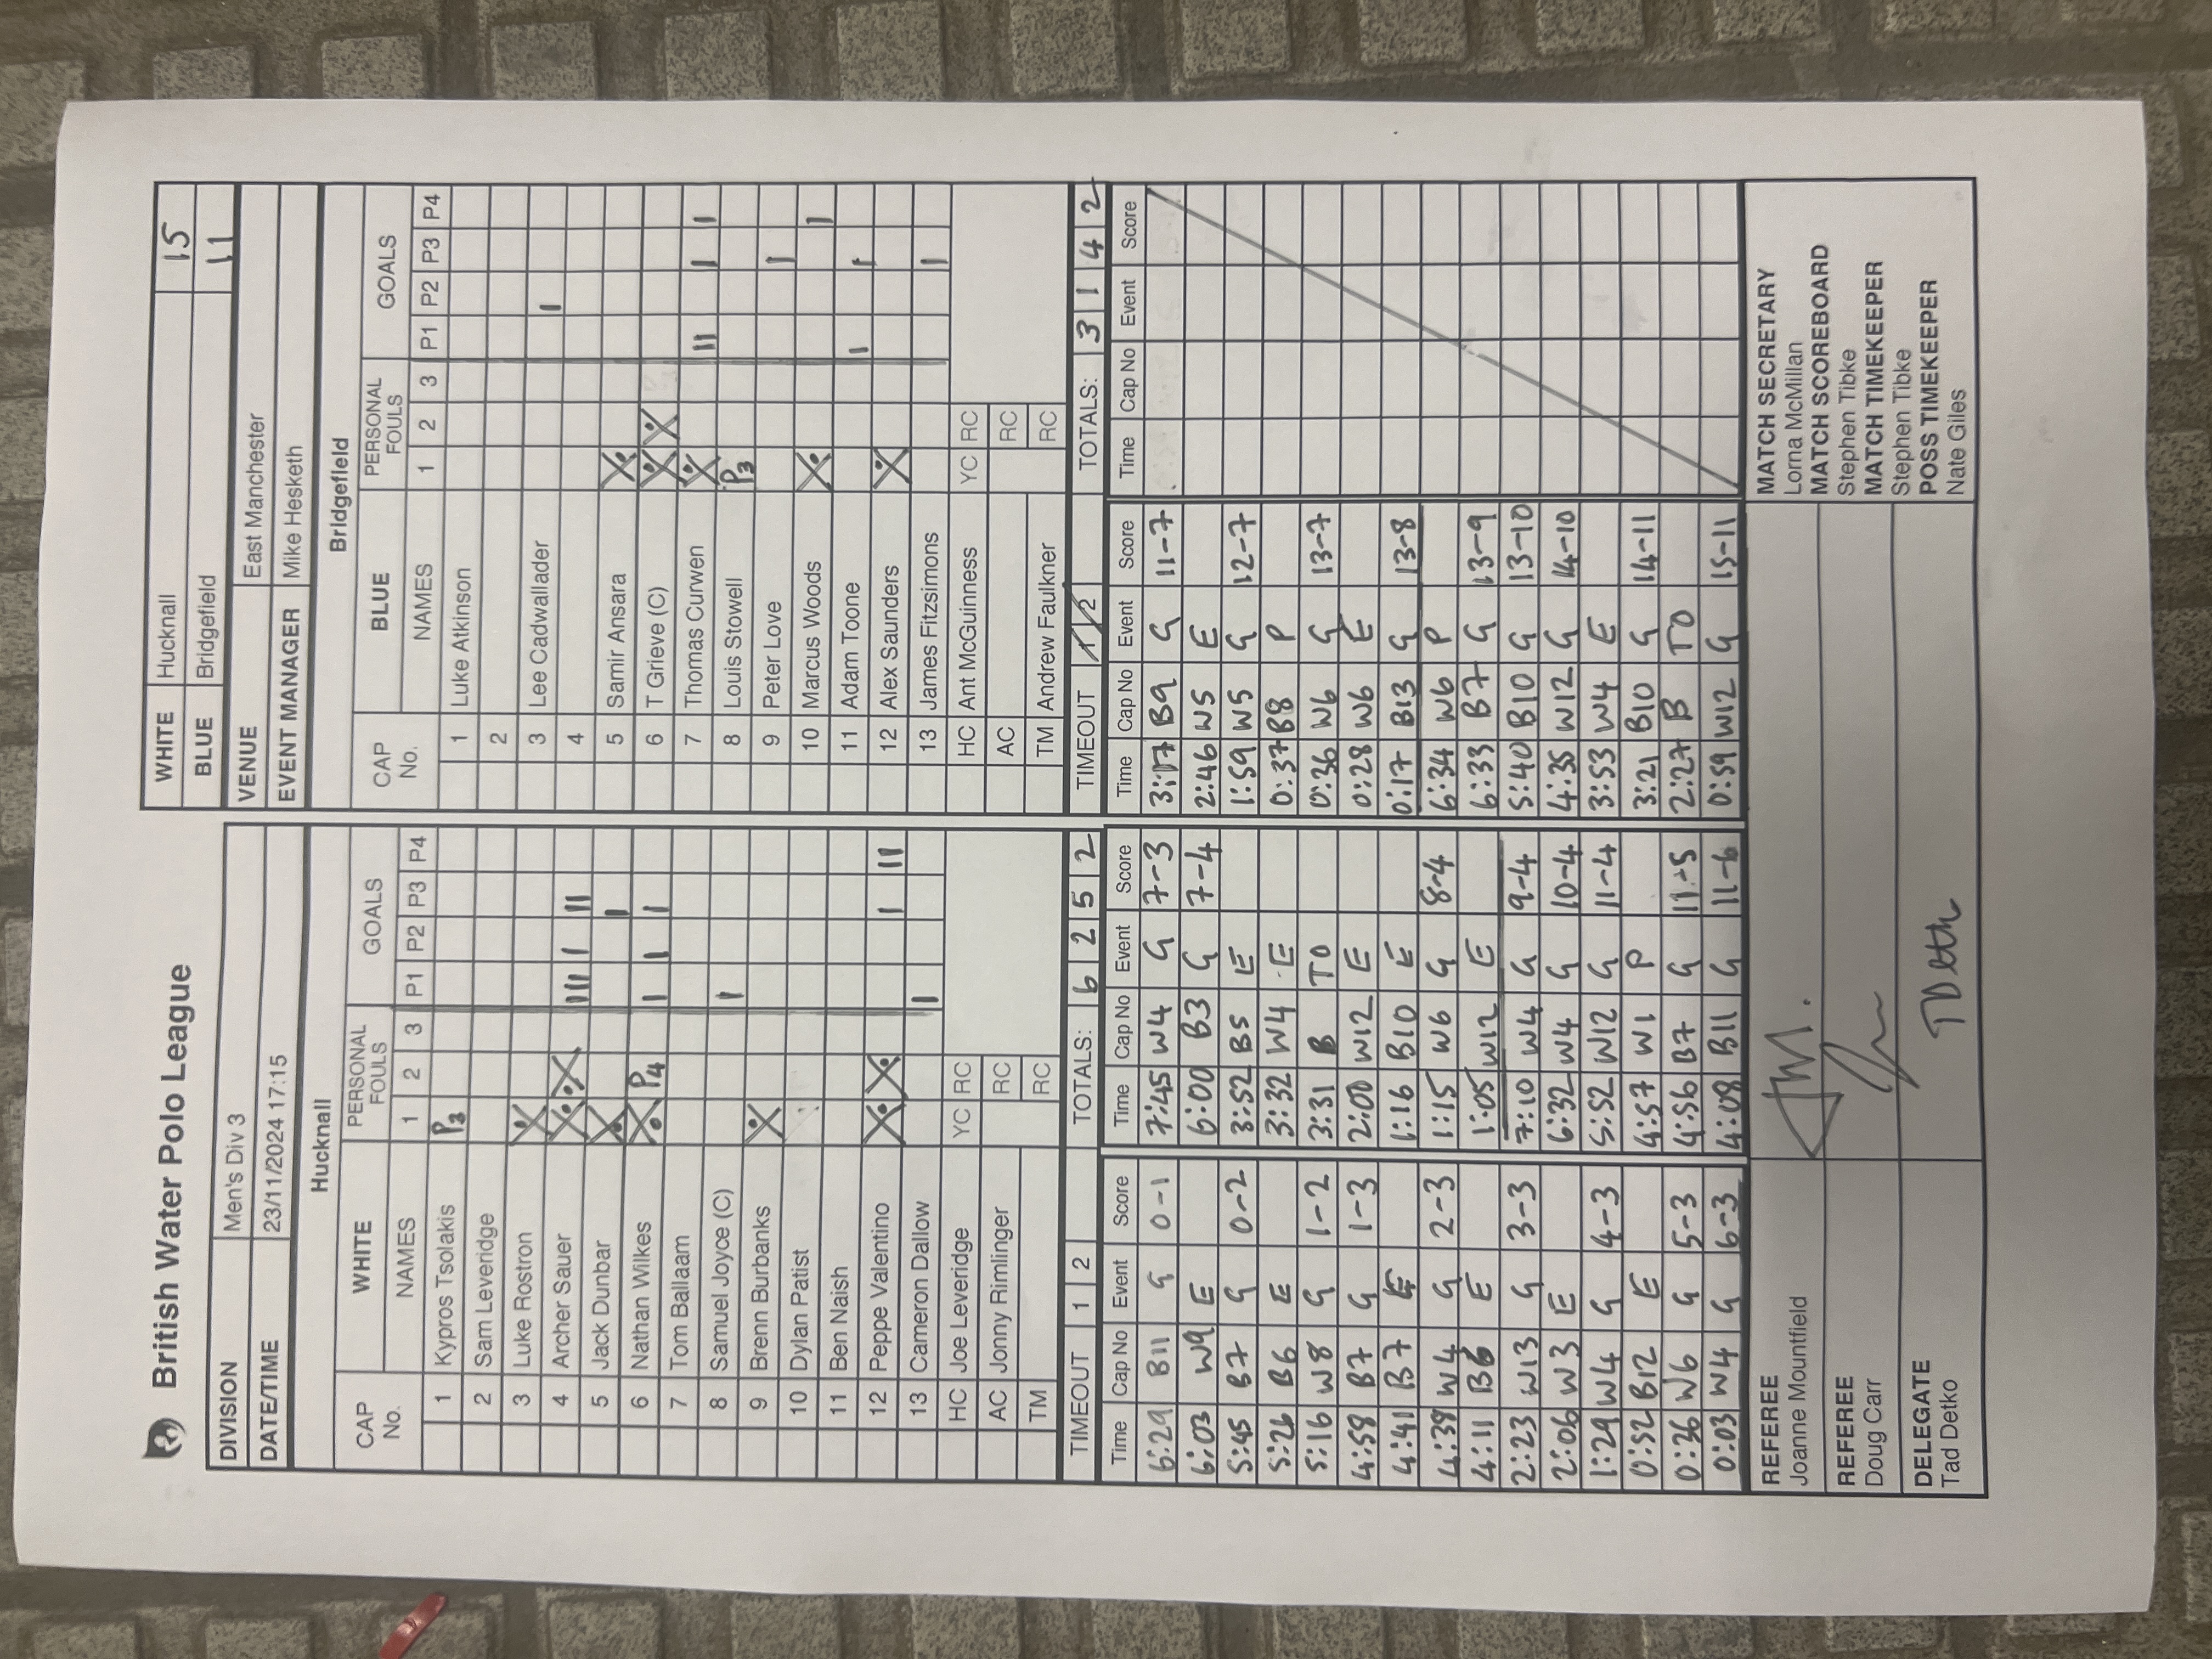 British Water Polo League
DIVISION Men's Div 3
DATE/TIME 23/11/2024 17:15
WHITE Hucknall 15
BLUE Bridgefield 11
VENUE East Manchester
EVENT MANAGER Mike Hesketh
Hucknall
CAP No. WHITE NAMES PERSONAL FOULS 1 2 3 GOALS P1 P2 P3 P4
1 Kypros Tsolakis P3
2 Sam Leveridge
3 Luke Rostron X
4 Archer Sauer X X III I II
5 Jack Dunbar X I
6 Nathan Wilkes X P4 I I I
7 Tom Ballaam
8 Samuel Joyce (C) I
9 Brenn Burbanks X
10 Dylan Patist
11 Ben Naish
12 Peppe Valentino X X I II
13 Cameron Dallow I
HC Joe Leveridge YC RC
AC Jonny Rimlinger RC
TM RC
TIMEOUT 1 2 TOTALS: 6 2 5 2
Bridgefield
CAP No. BLUE NAMES PERSONAL FOULS 1 2 3 GOALS P1 P2 P3 P4
1 Luke Atkinson
2
3 Lee Cadwallader I
4
5 Samir Ansara X
6 T Grieve (C) X X
7 Thomas Curwen X II I I
8 Louis Stowell P3
9 Peter Love I
10 Marcus Woods X I
11 Adam Toone I I
12 Alex Saunders X
13 James Fitzsimons I
HC Ant McGuinness YC RC
AC RC
TM Andrew Faulkner RC
TIMEOUT 1 2 TOTALS: 3 1 4 2
Time Cap No Event Score
6:29 B11 G 0-1
6:03 W9 E
5:45 B7 G 0-2
5:26 B6 E
5:16 W8 G 1-2
4:58 B7 G 1-3
4:41 B7 E
4:39 W4 G 2-3
4:11 B6 E
2:23 W13 G 3-3
2:06 W3 E
1:29 W4 G 4-3
0:52 B12 E
0:36 W6 G 5-3
0:03 W4 G 6-3
Time Cap No Event Score
7:45 W4 G 7-3
6:00 B3 G 7-4
3:52 B5 E
3:32 W4 E
3:31 B TO
2:00 W12 E
1:16 B10 E
1:15 W6 G 8-4
1:05 W12 E
7:10 W4 G 9-4
6:32 W4 G 10-4
5:52 W12 G 11-4
4:57 W1 P
4:56 B7 G 11-5
4:08 B11 G 11-6
Time Cap No Event Score
3:17 B9 G 11-7
2:46 W5 E
1:59 W5 G 12-7
0:37 B8 P
0:36 W6 G 13-7
0:28 W6 E
0:17 B13 G 13-8
6:34 W6 P
6:33 B7 G 13-9
5:40 B10 G 13-10
4:35 W12 G 14-10
3:53 W4 E
3:21 B10 G 14-11
2:27 B TO
0:59 W12 G 15-11
Time Cap No Event Score
REFEREE
Joanne Mountfield
REFEREE
Doug Carr
DELEGATE
Tad Detko
MATCH SECRETARY
Lorna McMillan
MATCH SCOREBOARD
Stephen Tibke
MATCH TIMEKEEPER
Stephen Tibke
POSS TIMEKEEPER
Nate Giles